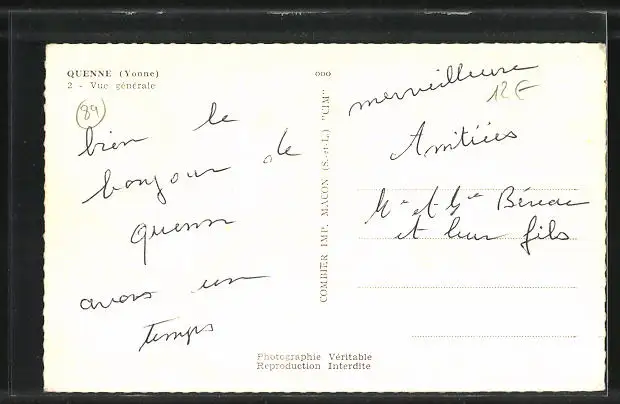 QUENNE (Yonne)
2 - Vue générale
89
bien le
bonjour de
Quenne
avons un
temps
COMBIER IMP. MACON (S.-et-L.) "CIM"
merveilleux
12 €
Amitiés
et leur fils
Photographie Véritable
Reproduction Interdite